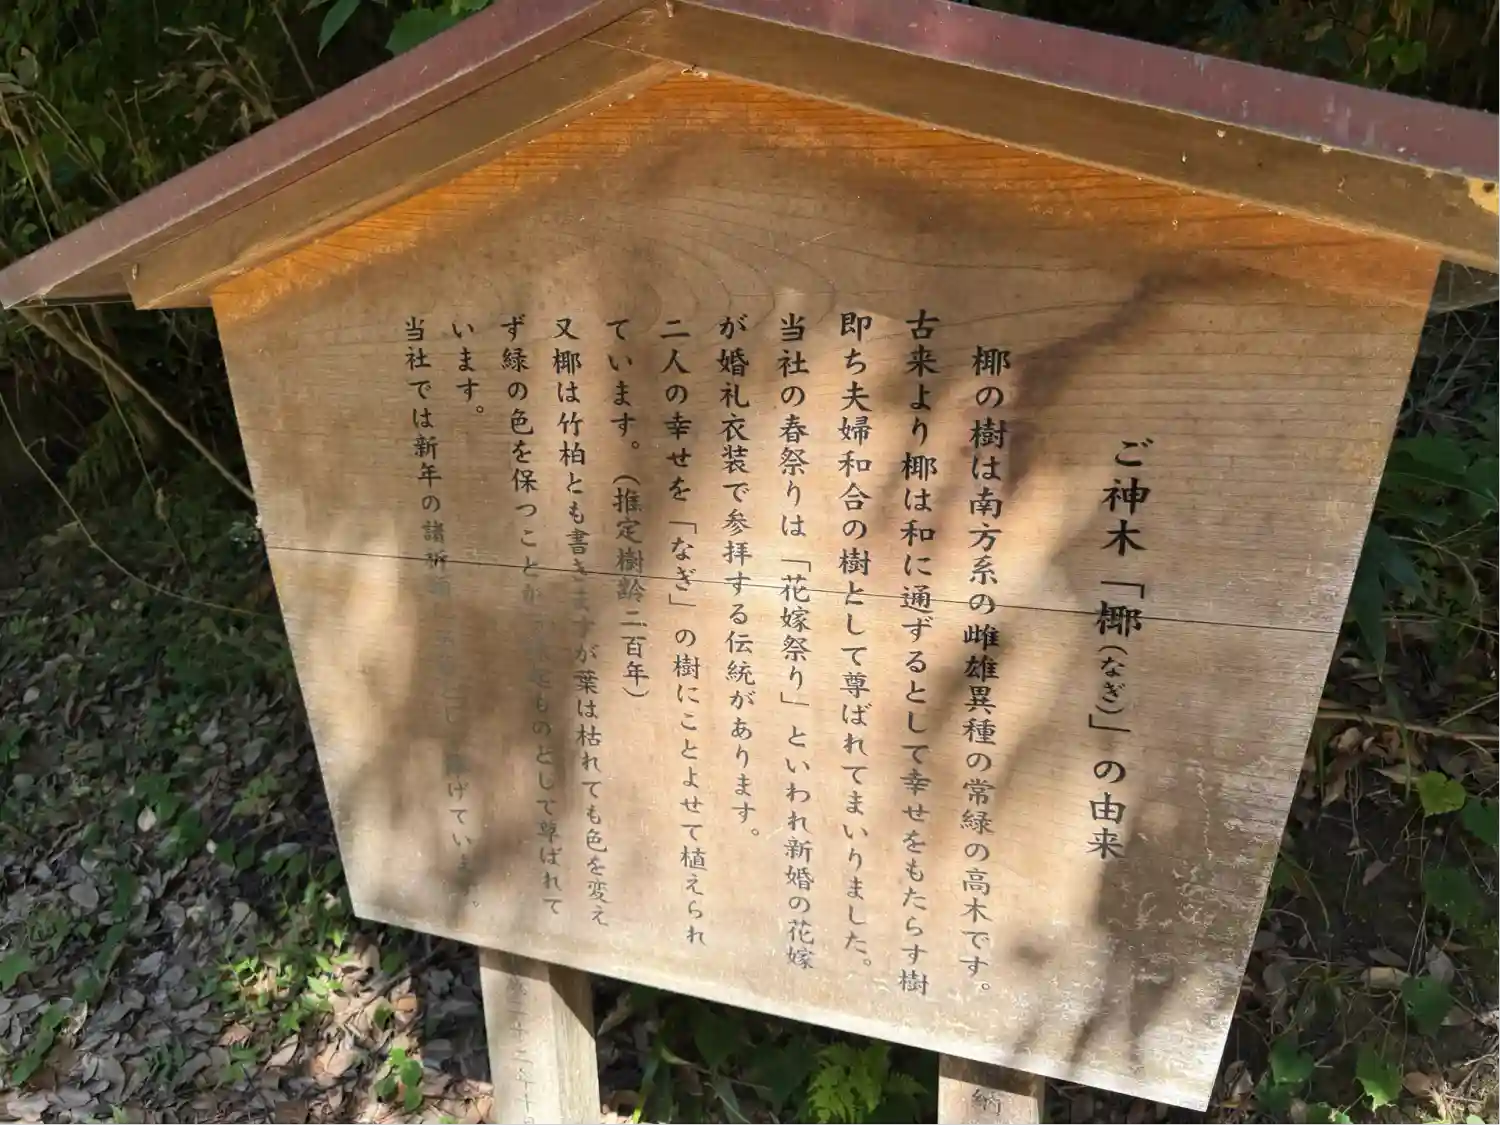 ご神木「椰(なぎ)」の由来
椰の樹は南方系の雌雄異種の常緑の高木です。
古来より椰は和に通ずるとして幸せをもたらす樹
即ち夫婦和合の樹として尊ばれてまいりました。
当社の春祭りは「花嫁祭り」といわれ新婚の花嫁
が婚礼衣装で参拝する伝統があります。
二人の幸せを「なぎ」の樹にことよせて植えられ
ています。(推定樹齢二百年)
又椰は竹柏とも書きますが葉は枯れても色を変え
ず緑の色を保つことが ものとして尊ばれて
います。
当社では新年の諸祈願 げていま 。
二十二年十月
納